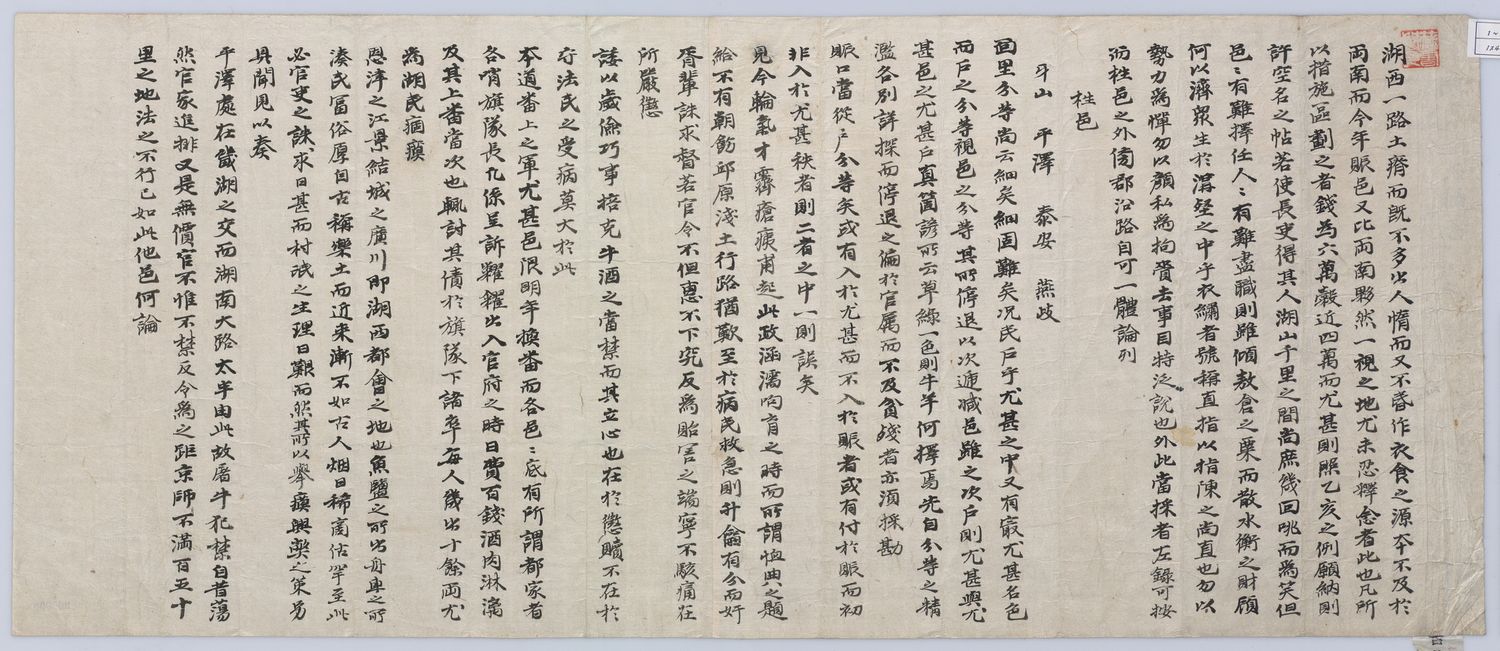 湖西一路土瘠而旣不多出人惰而又不善作衣食之源太半不及於
兩南而今年賑邑又比兩南夥然一視之地尤未忍釋念者此也凡所
以措施區劃之者錢爲六萬穀近四萬而尤甚則照乙亥之例願納則
許空名之帖若使長吏得其人湖山千里之間尚庶幾回咷而爲笑但
邑〻有難擇任人〻有難盡職則雖傾敖倉之粟而散水衡之財顧
何以濟衆生於溝壑之中乎衣繡者號稱直指以指陳之尚直也勿以
勢力爲憚勿以顔私爲拘賚去事目特泛說也外此當採者左錄可按
而栍邑之外傍郡沿路自可一體論列
栍邑
牙山 平澤 泰安 燕歧
面里分等尚云細矣細固難矣况民戶乎尤甚之中又有最尤甚名色
而戶之分等視邑之分等其所停退以次遞減邑雖之次戶則尤甚與尤
甚邑之尤甚戶眞箇諺所云草綠一色則牛羊何擇焉先自分等之精
濫各別詳探而停退之偏於官属而不及貧殘者亦須採勘
賑口當從戶分等矣或有入於尤甚而不入於賑者或有付於賑而初
非入於尤甚秩者則二者之中一則誤矣
見今輪氣才霽瘡痍甫起此政涵濡响育之時而所謂恤典之題
給不有朝飭邱原淺土行路猶歎至於病民救急則升龠有分而奸
胥輩誅求督若官令不但惠不下究反爲貽害之端寧不駭痛在
所嚴懲
諉以歲儉巧事掊克牛酒之當禁而其立心也在於懲贖不在於
守法民之受病莫大於此
本道番上之軍尤甚邑限明年換番而各邑〻底有所謂都家者
各哨旗隊長凡係呈訴糶糴出入官府之時日費百錢酒肉淋漓
及其上番當次也輒討其債於旗隊下諸卒每人幾出十餘兩尤
爲湖民痼瘼
恩津之江景結城之廣川即湖西都會之地也魚鹽之所出舟車之所
湊民富俗厚自古稱樂土而近来漸不如古人烟日稀商估罕至此
必官吏之誅求日甚而村氓之生理日艱而然其所以擧瘼興弊之策另
具聞見以奏
平澤處在畿湖之交而湖南大路太半由此故屠牛犯禁自昔蕩
然官家進排又是無價官不惟不禁反令爲之距京師不滿百五十
里之地法之不行已如此他邑何論